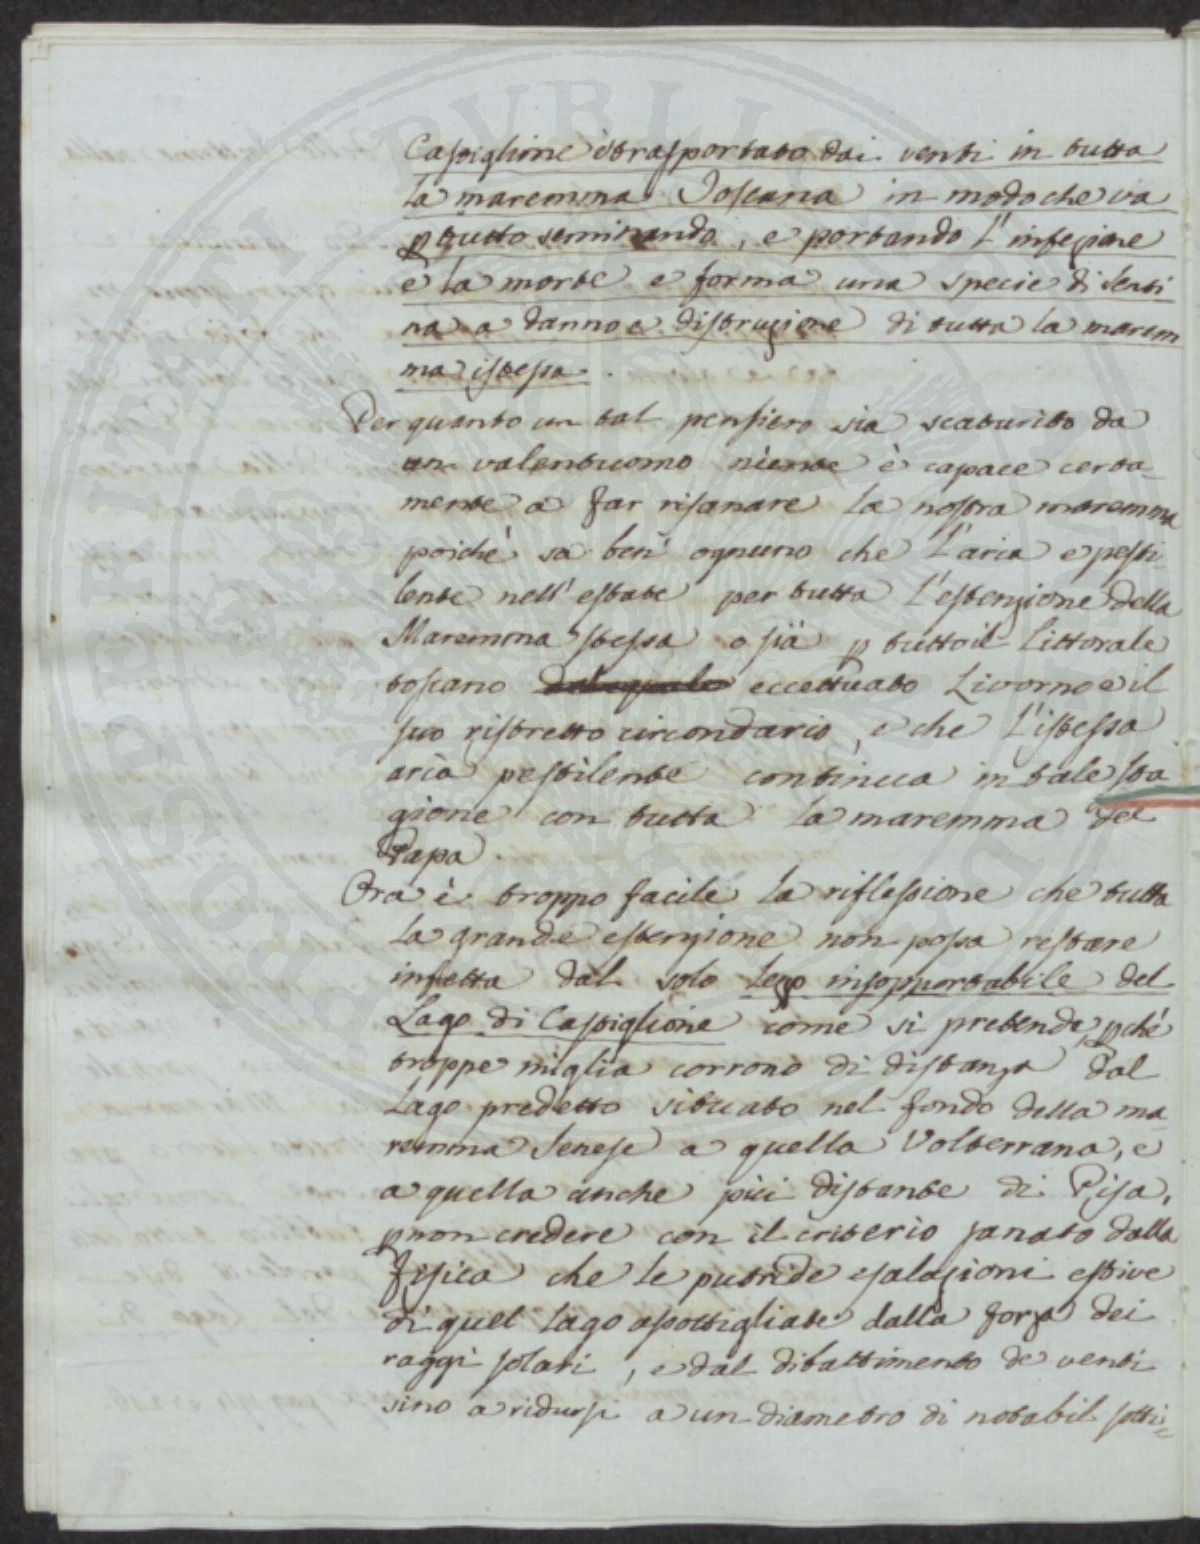 Castiglione è trasportato dai venti in tutta
la maremma Toscana in modo che va
p tutto seminando, e portando l'infezione
e la morte e forma una specie di senti
na a danno e distruzione di tutta la marem
ma istessa.
Per quanto un tal pensiero sia scaturito da
un valentuomo niente è capace certa-
mente a far risanare la nostra maremma
poichè sa ben ognuno che l'aria e pesti
lente nell'estate per tutta l'estenzione della
Maremma stessa o sia p tutto il littorale
toscano eccettuato Livorno e il
suo ristretto circondario, e che l'istessa
aria pestilente continua in tale sta
gione con tutta la maremma del
Papa.
Ora è troppo facile la riflessione che tutta
la grande estenzione non possa restare
infetta dal solo lezo insopportabile del
Lago di Castiglione come si pretende, pchè
troppe miglia corrono di distanza dal
Lago predetto situato nel fondo della ma
remma Senese a quella Volterrana, e
a quella anche più distante di Pisa,
p non credere con il criterio sanato dalla
fisica che le putride esalazioni estive
di quel Lago assottigliate dalla forza dei
raggi solari, e dal dibattimento de venti
sino a ridursi a un diametro di notabil sotti=
PROSPERITATI PUBLICAE